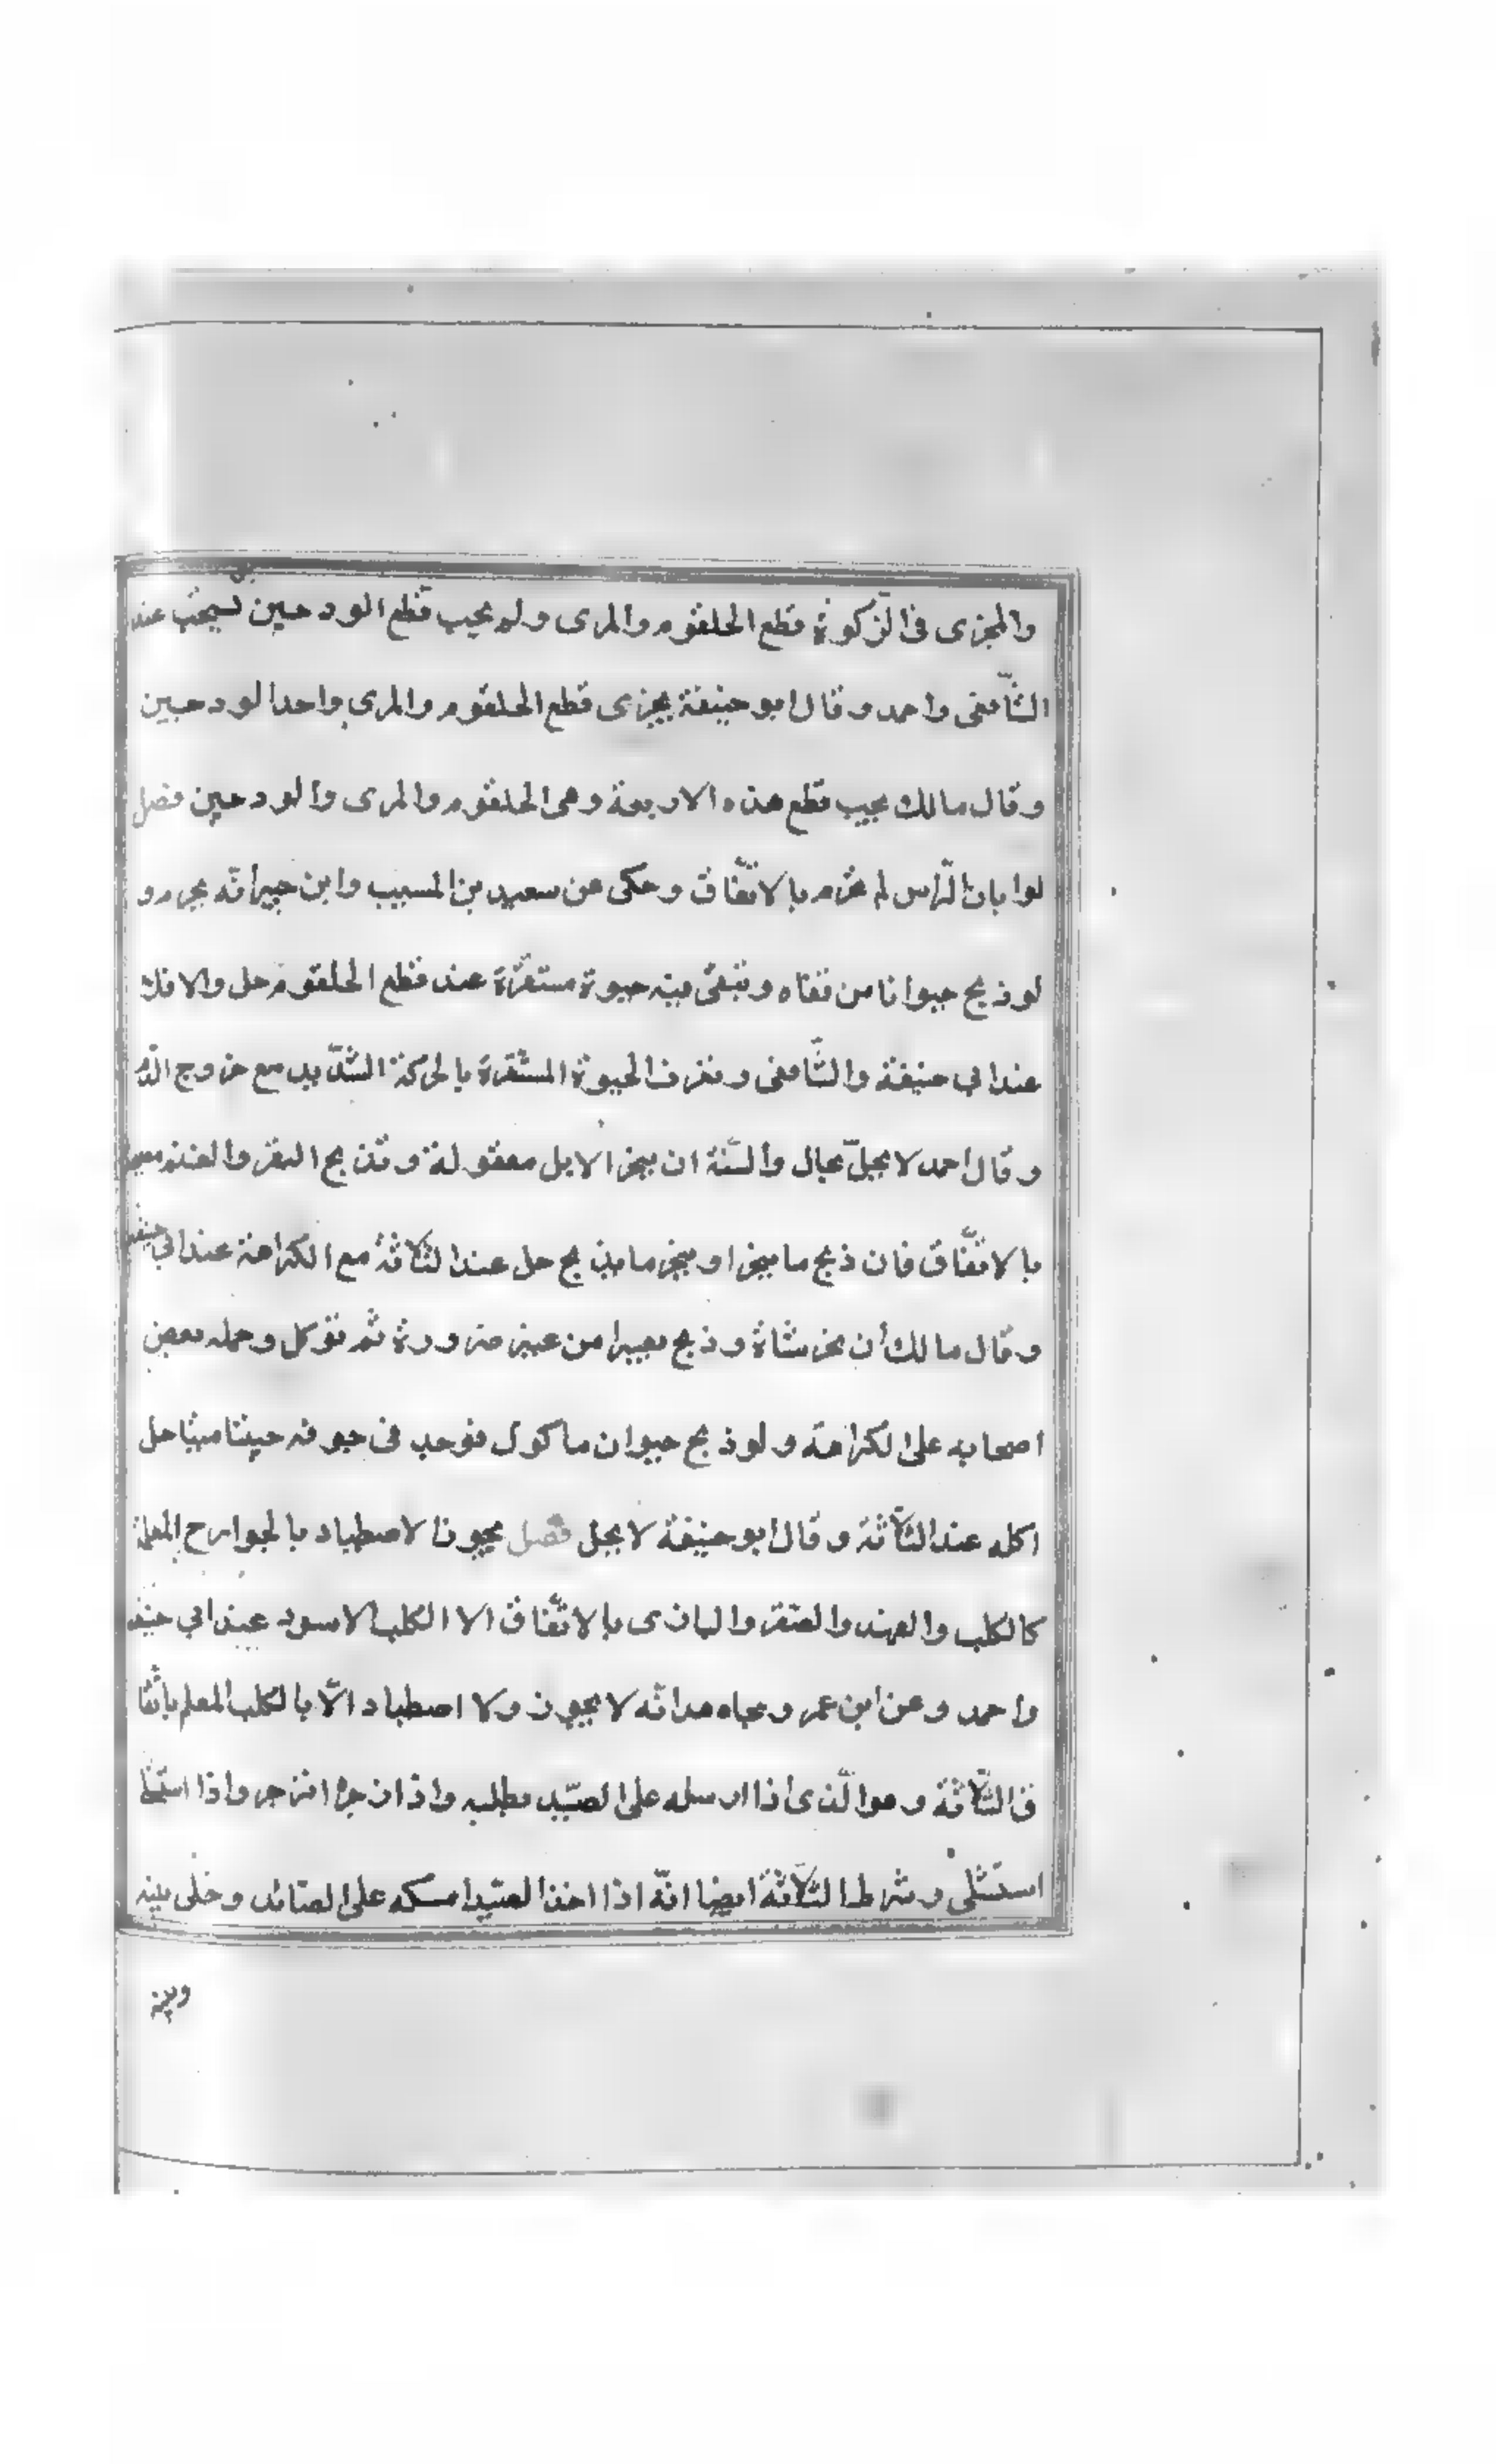 والمجزى فى الزكوة قطع الحلقوم والمرى ولم يجب قطع الودجين بل يسيحب عند
الشافعى واحمد وقال ابو حنيفة يجزى قطع الحلقوم والمرى واحد الودجين
وقال مالك يجب قطع هذه الاربعة وهى الحلقوم والمرى والودجين فصل
لو ابان الراس لم تحرم بالاتفاق وحكى عن سعيد بن المسيب وابن جبير انه يحرم و
لو ذبح حيوانا من قفاه وتبقى فيه حيوة مستقرة عند قطع الحلقوم حل والا فلا
عند ابي حنيفة والشافعى وتعرف الحيوة المستقرة بالحركة الشديد مع خروج الدم
وقال احمد لا يحل بحال والسنة ان ينحر الابل معقولة وتذبح البقر والغنم مضجعة
بالاتفاق فان ذبح ما ينحر او ينحر ما يذبح حل عند الثلاثة مع الكراهة عند ابي حنيفة
وقال مالك أن نحر شاة وذبح بعيرا من غير ضرورة ثم تؤكل وحمله بعض
اصحابه على الكراهة ولو ذبح حيوان ماكول فوجد فى جوفه جنينا ميتا حل
اكله عند الثلاثة وقال ابو حنيفة لا يحل فصل يجوز الاصطياد بالجوارح المعلمة
كالكلب والفهد والصقر والبازى بالاتفاق الا الكلب الاسود عند ابي حنيفة
واحمد وعن ابن عمر ومجاهد انه لا يجوز ولا اصطياد الا بالكلب المعلم باتفا
ق الثلاثة وهو الذى اذا ارسله على الصيد بطلبه واذا زجره انزجر واذا استشلا
استشلى وشرط الثلاثة ايضا انه اذا اخذ الصيد امسكه على الصائد وخلى بينه
وبينه